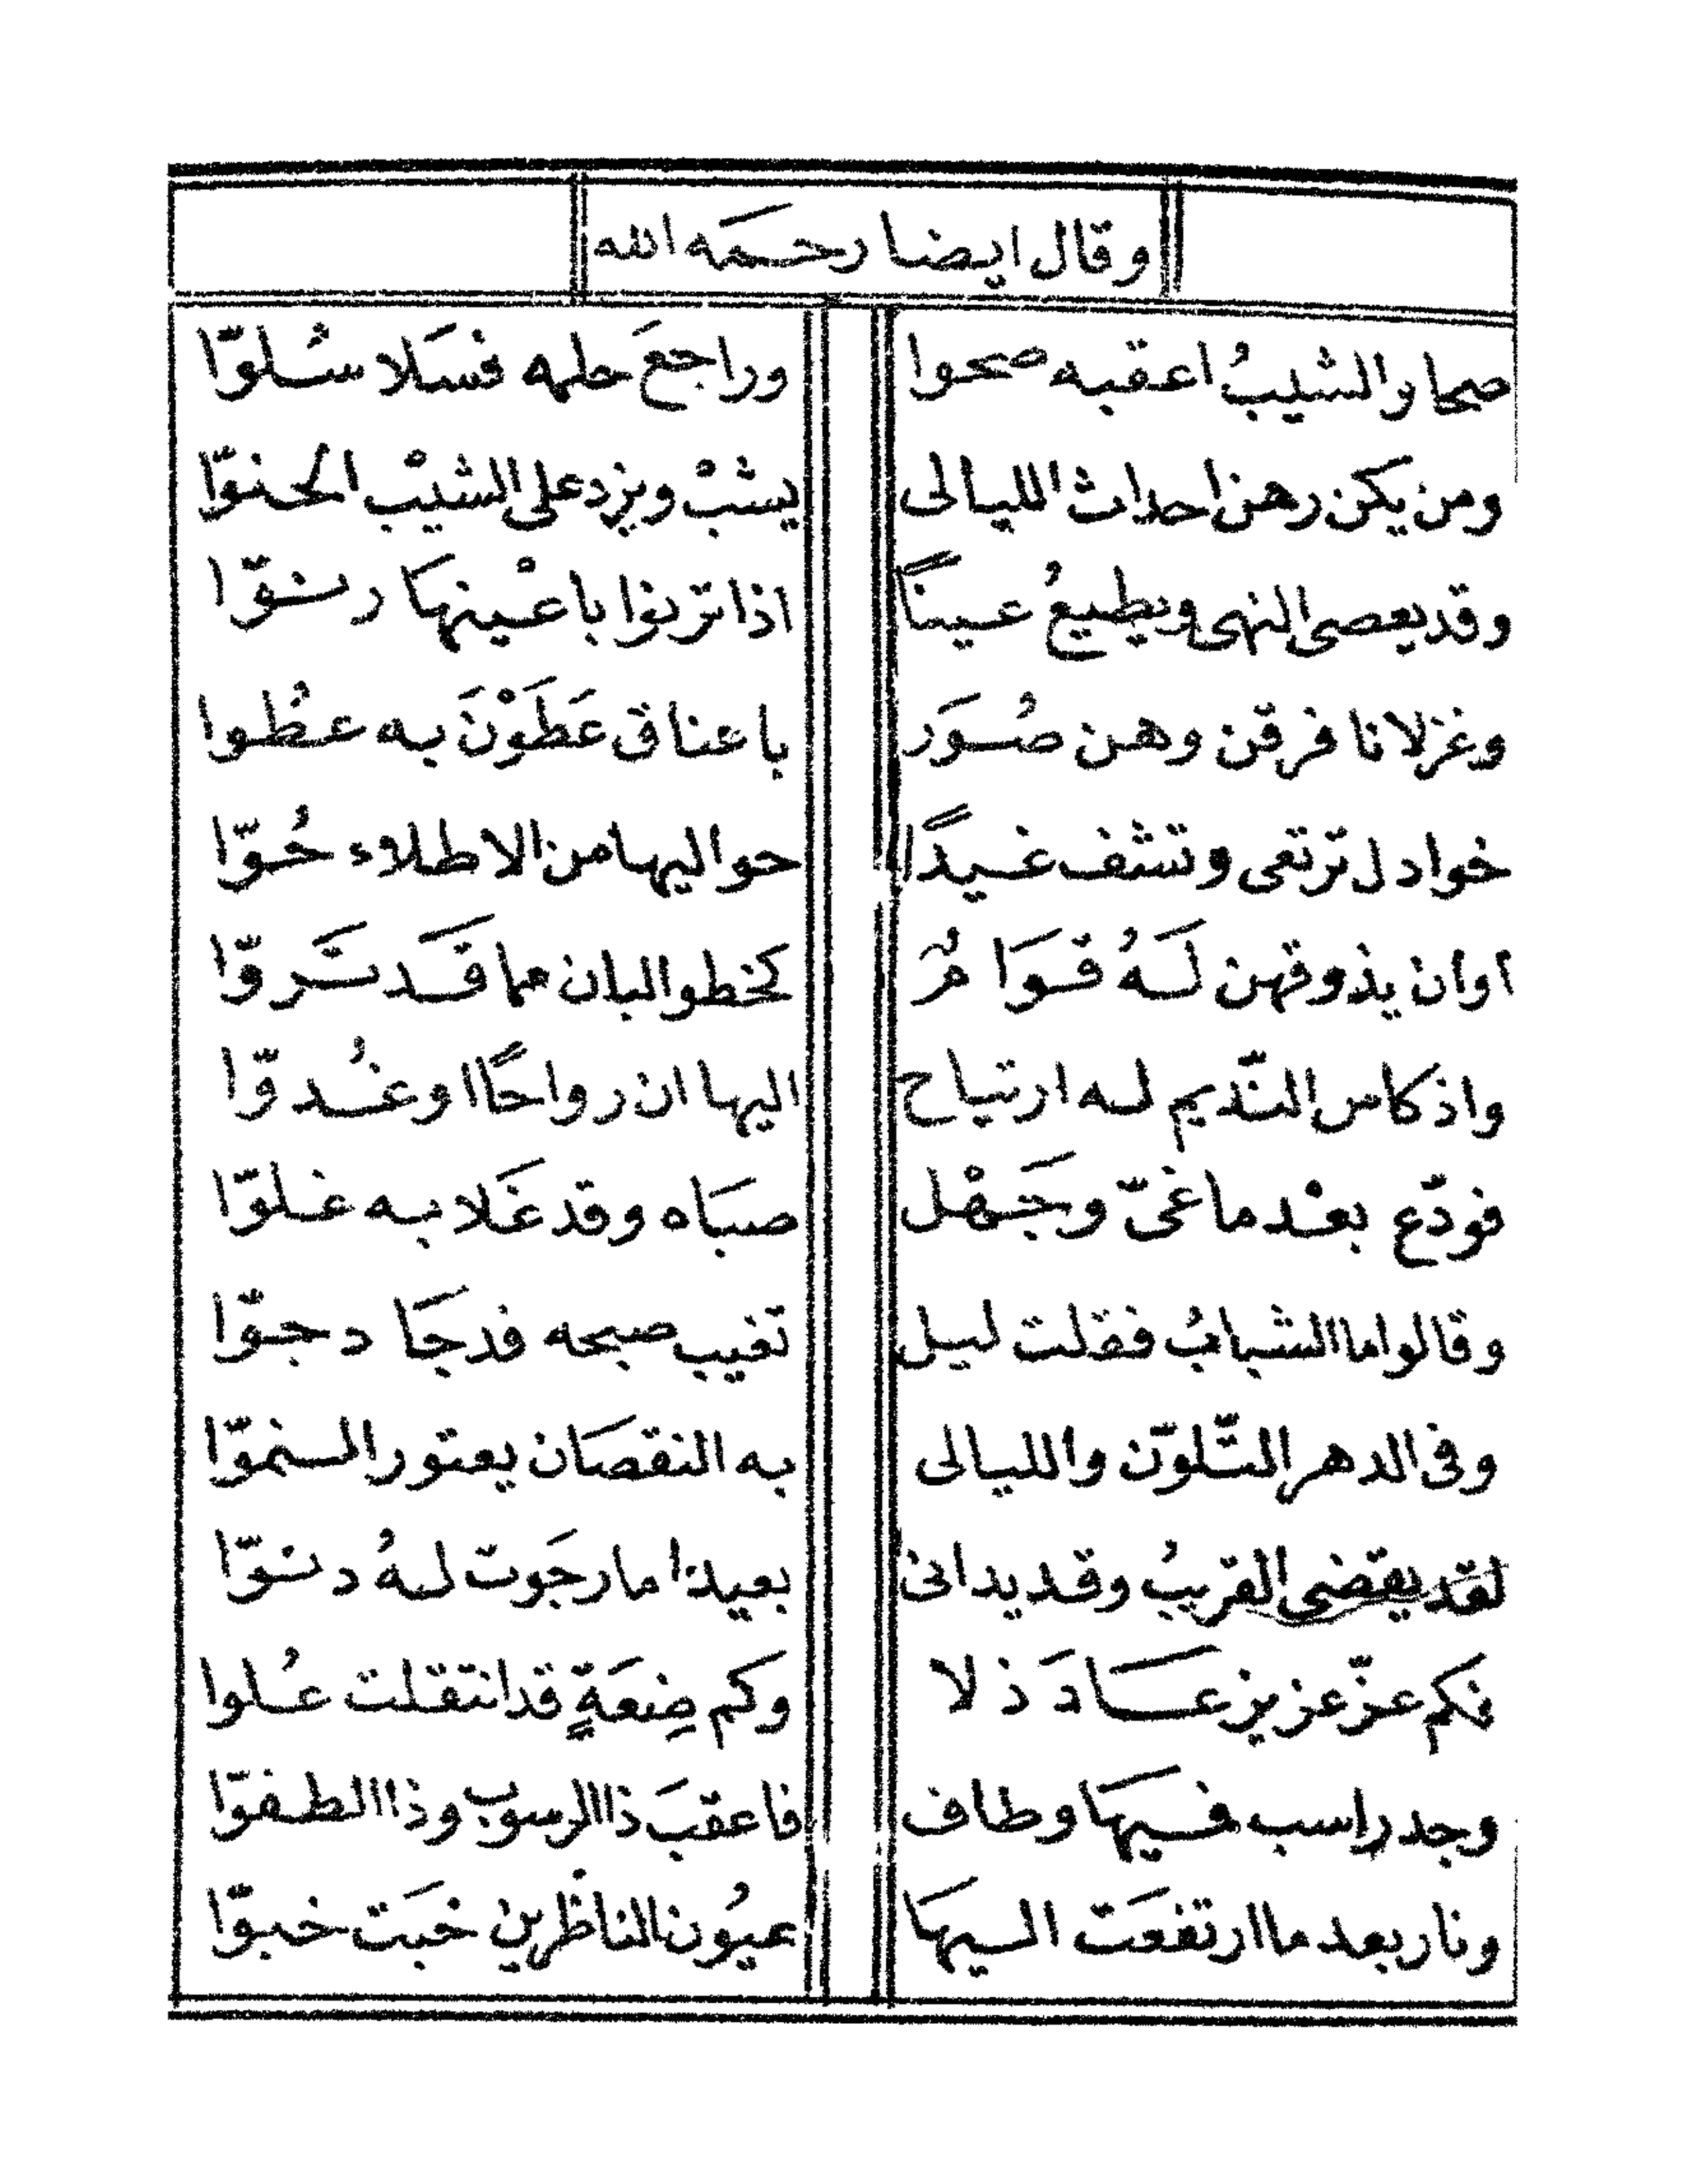 وقال ايضا رحمَه الله
صحا والشيبُ اعقبه صحوا وراجعَ حلمه فسَلا سُلوّا
ومن يكن رهن احداث الليالى يشبْ ويزد على الشيْب الحنوّا
وقد يعصى النهى ويطيعُ عيناً اذا تربوا باعْينهَا رنوّا
وغزلانا فرقن وهن صُوَر باعناق عَطَوْنَ به عطُوا
خوادل ترتعى وتشف غيدًا حواليها من الاطلاء حُوّا
اوان يذوقهن لَهُ قوَا مُر كخطو البان مما قَد تَروّا
واذ كاس النّديم له ارتياح اليها ان رواحًاا وغُدوّا
فودّع بعْد ما غىّ وجَهْل صبَاه وقد غَلا به غلوّا
وقالوا ما الشبابُ فقلت ليل تغيب صبحه فدجَا دجوّا
وفى الدهر التّلوّن والليالى به النقصَان يعتور النموّا
لقد يقضى القريبُ وقد يدانى بعيدا ما رجَوت لهُ دنوّا
نكم عزّ عزيز عَادَ ذلا وكم ضِعَةٍ قد انتقلت عُلوا
وجد راسب فيهَا وطاف فاعقبَ ذا الرسوب وذا الطفوّا
ونار بعد ما ارتفعَت اليهَا عيُون الناظرين خبَت خبوّا